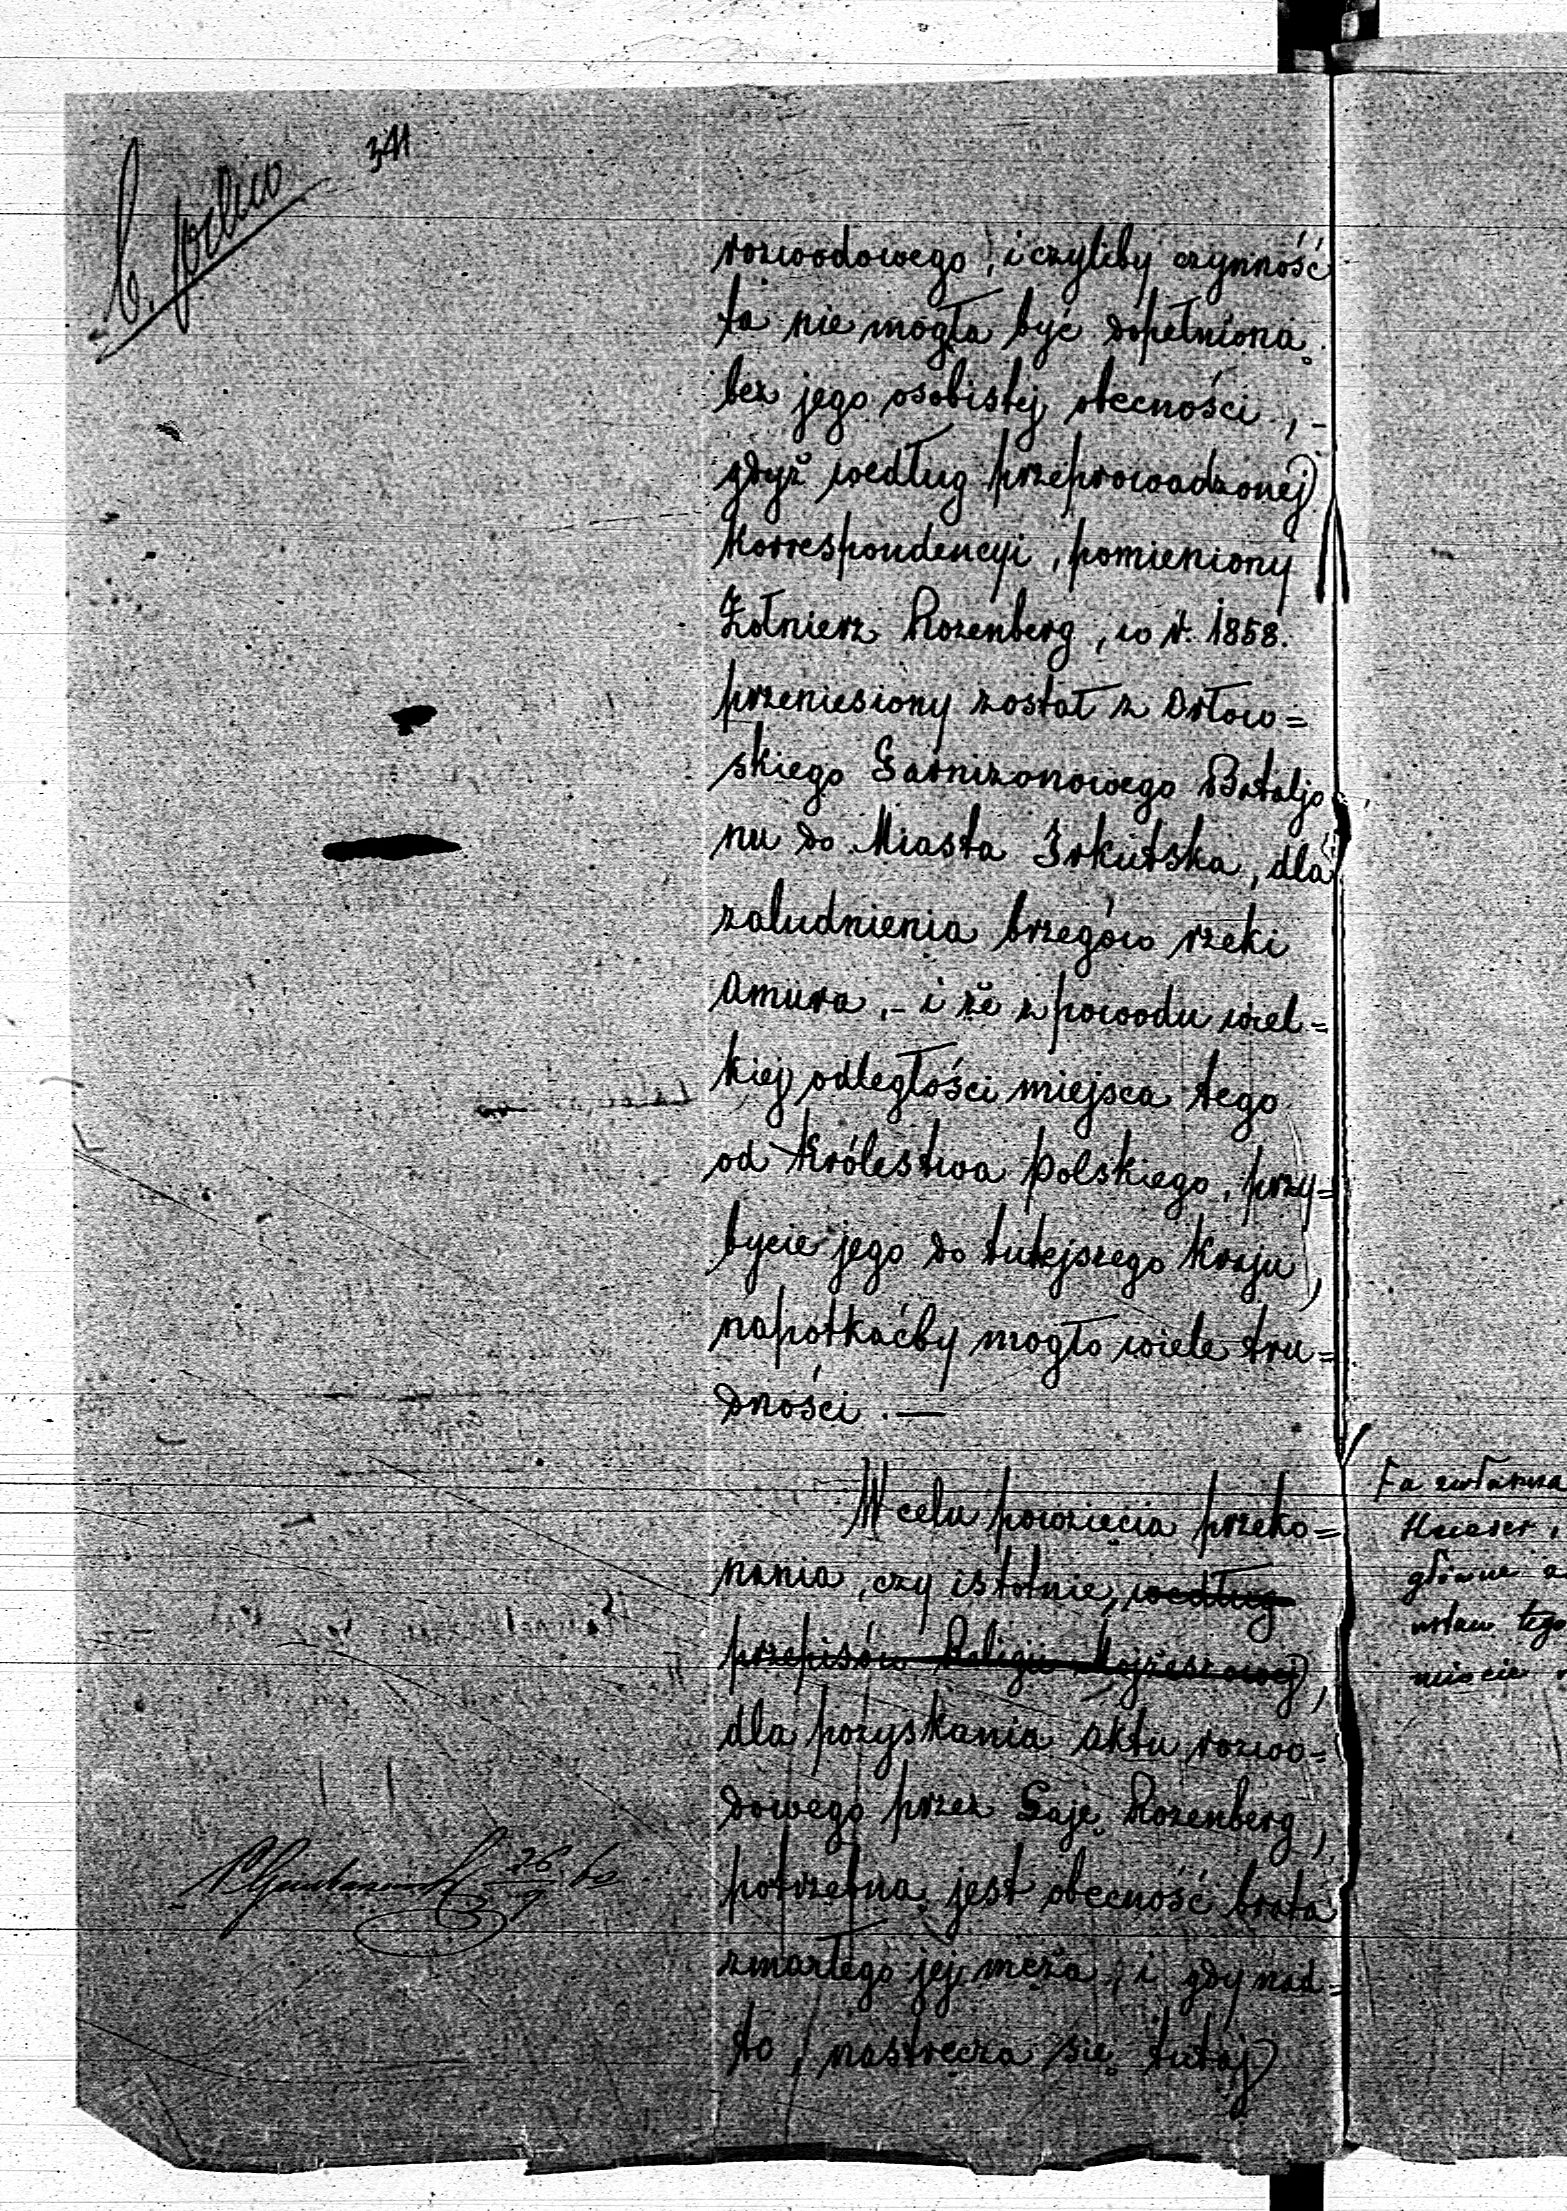 341
rozwodowego, i czyliby czynność
ta nie mogła być dopełnioną
bez jego osobistej obecności, -
gdyż według przeprowadzonej
Korrespondencyi, pomieniony
Żołnierz Rozenberg, w r. 1858.
przeniesiony został z Orłow=
skiego Garnizonowego Bataljo
nu do Miasta Irkutska, dla
zaludnienia brzegów rzeki
Amura, - i że z powodu wiel=
kiej odległości miejsca tego
od Królestwa Polskiego, przy=
bycie jego do tutejszego Kraju,
napotkaćby mogło wiele tru=
dności. —
W celu powzięcia przeko=
nania, czy istotnie, według
przepisów Religii Mojżeszowej,
dla pozyskania aktu rozwo=
dowego przez Gaję Rozenberg,
potrzebną jest obecność brata
zmarłego jej męża, i gdy nad=
to, nastręcza się tutaj